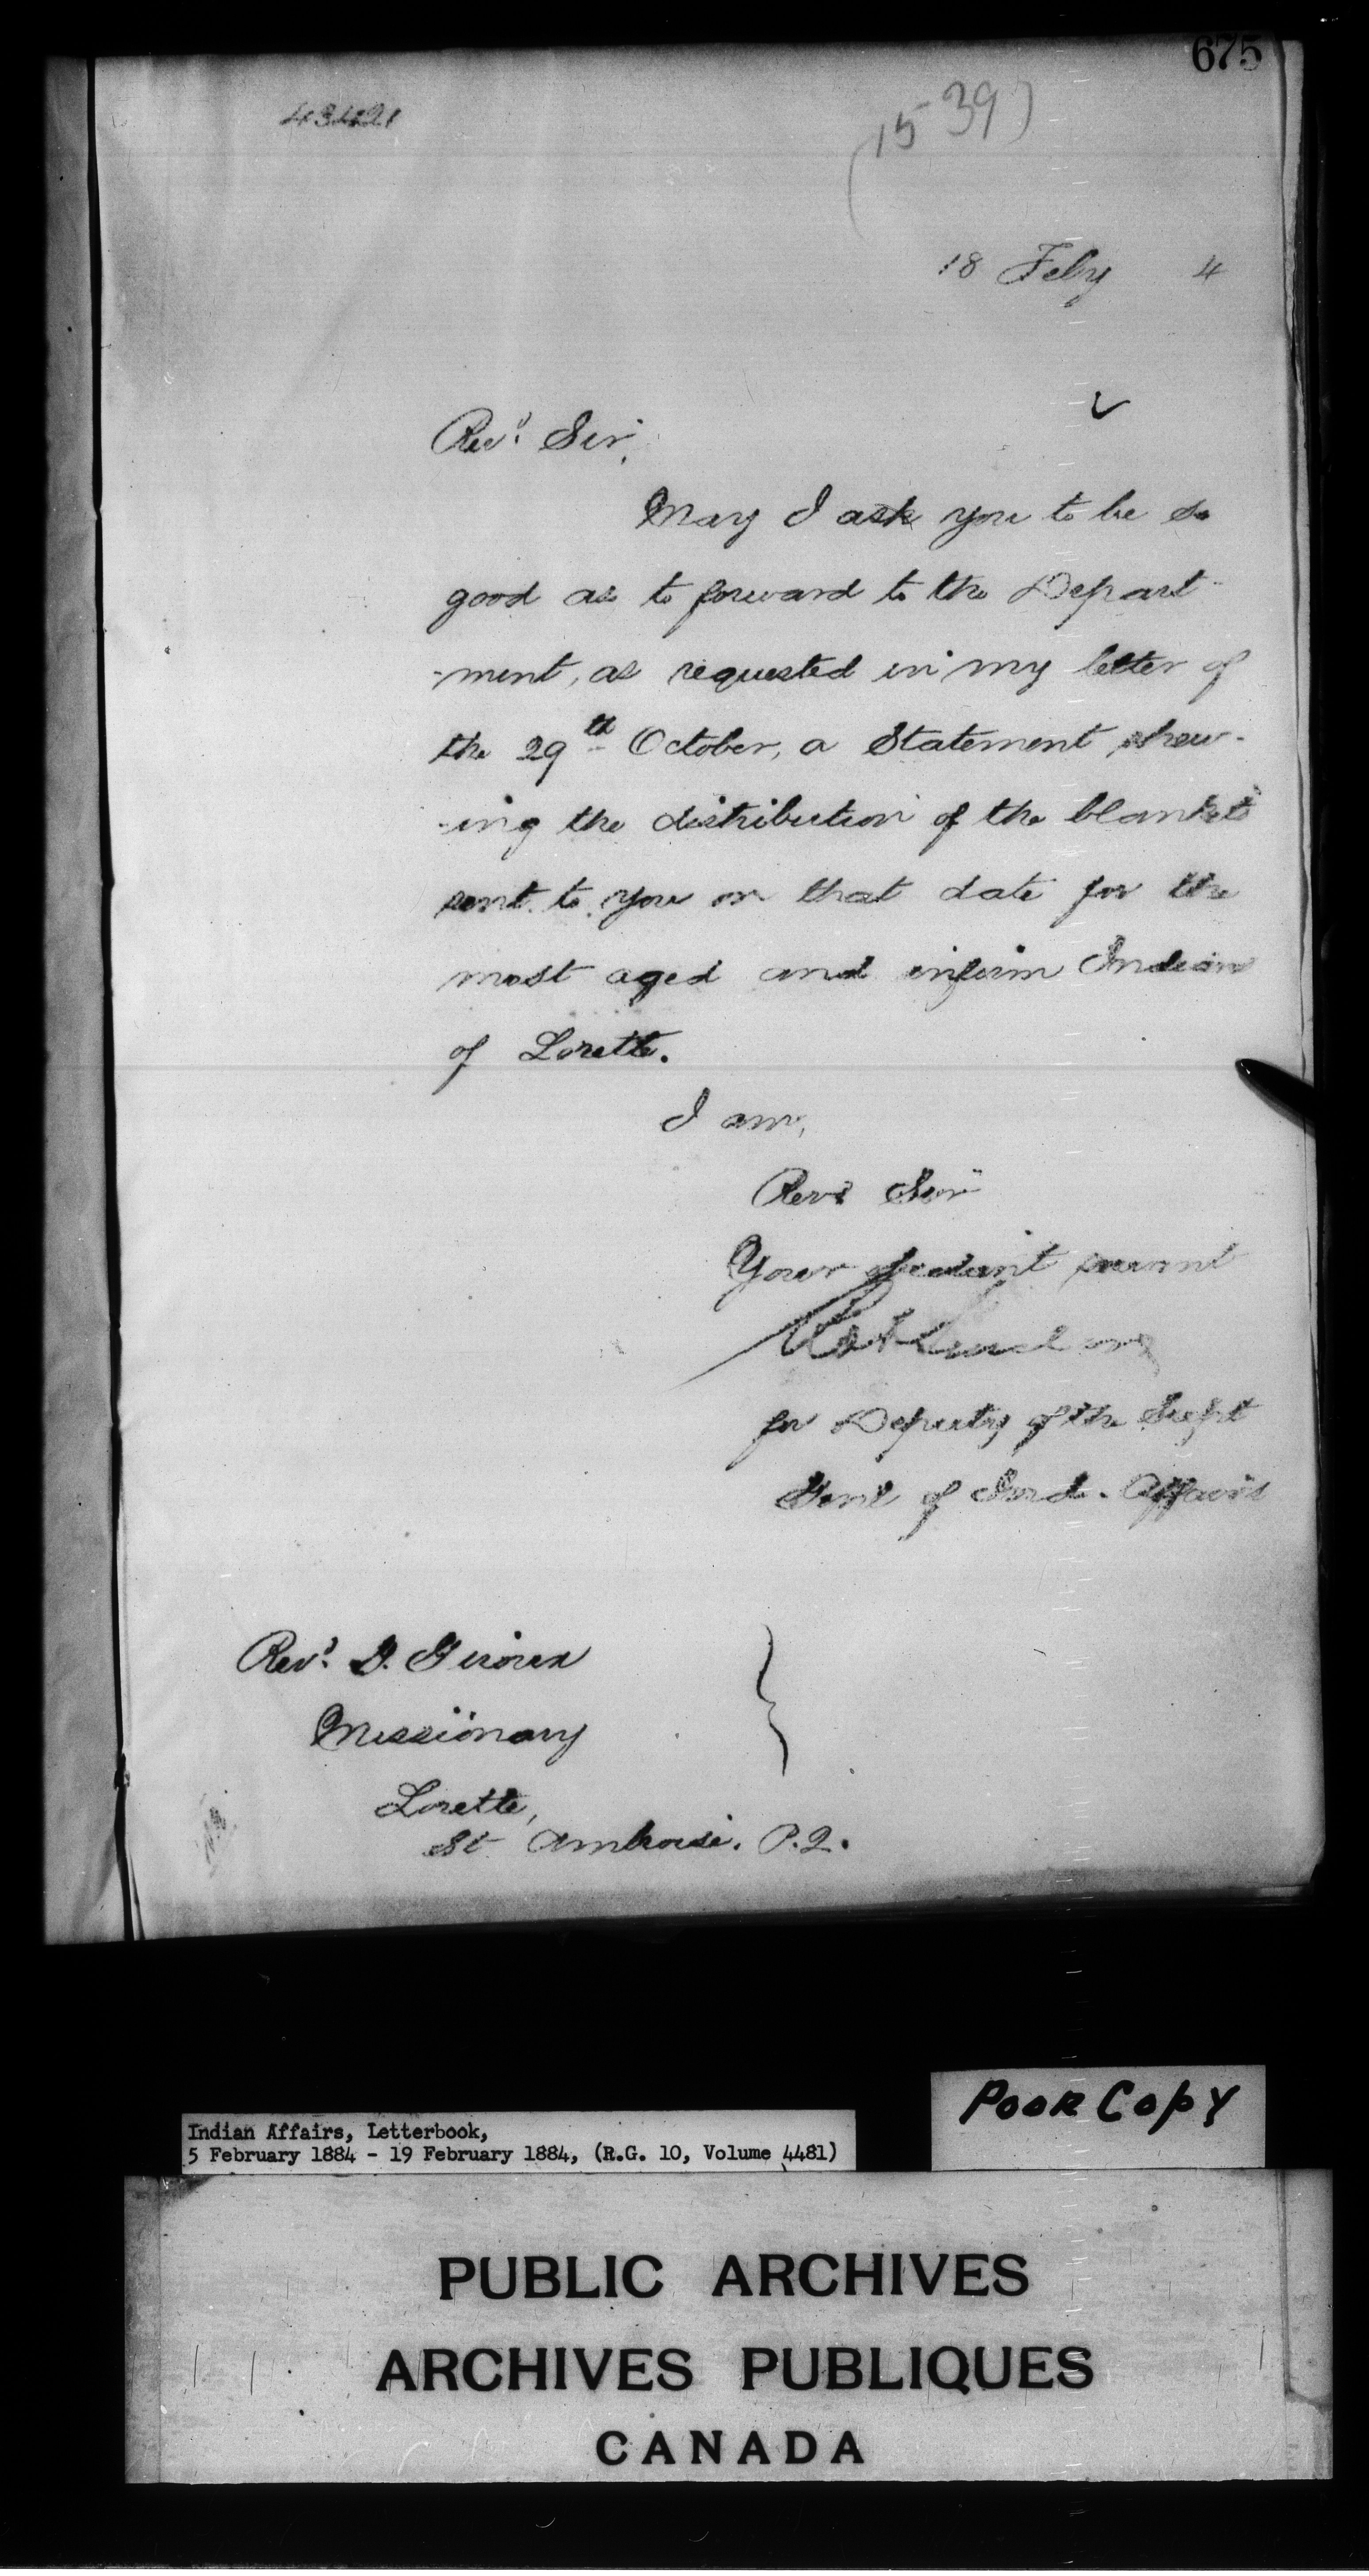 675
43421
(1539)
18 Feby 4
Revd. Sir,
May I ask you to be so
good as to forward to the Depart-
-ment, as requested in my letter of
the 29th October, a Statement shew-
-ing the distribution of the blankets
sent to you on that date for the
most aged and infirm Indians
of Lorette.
I am,
Revd Sir
Your obedient servant
for Deputy of the Supt
Genl of Ind. Affairs
Revd. G. Giroux
Missionary
Lorette,
St Ambroise. P.Q.
Poor Copy
Indian Affairs, Letterbook,
5 February 1884 - 19 February 1884, (R.G. 10, Volume 4481)
PUBLIC ARCHIVES
ARCHIVES PUBLIQUES
CANADA